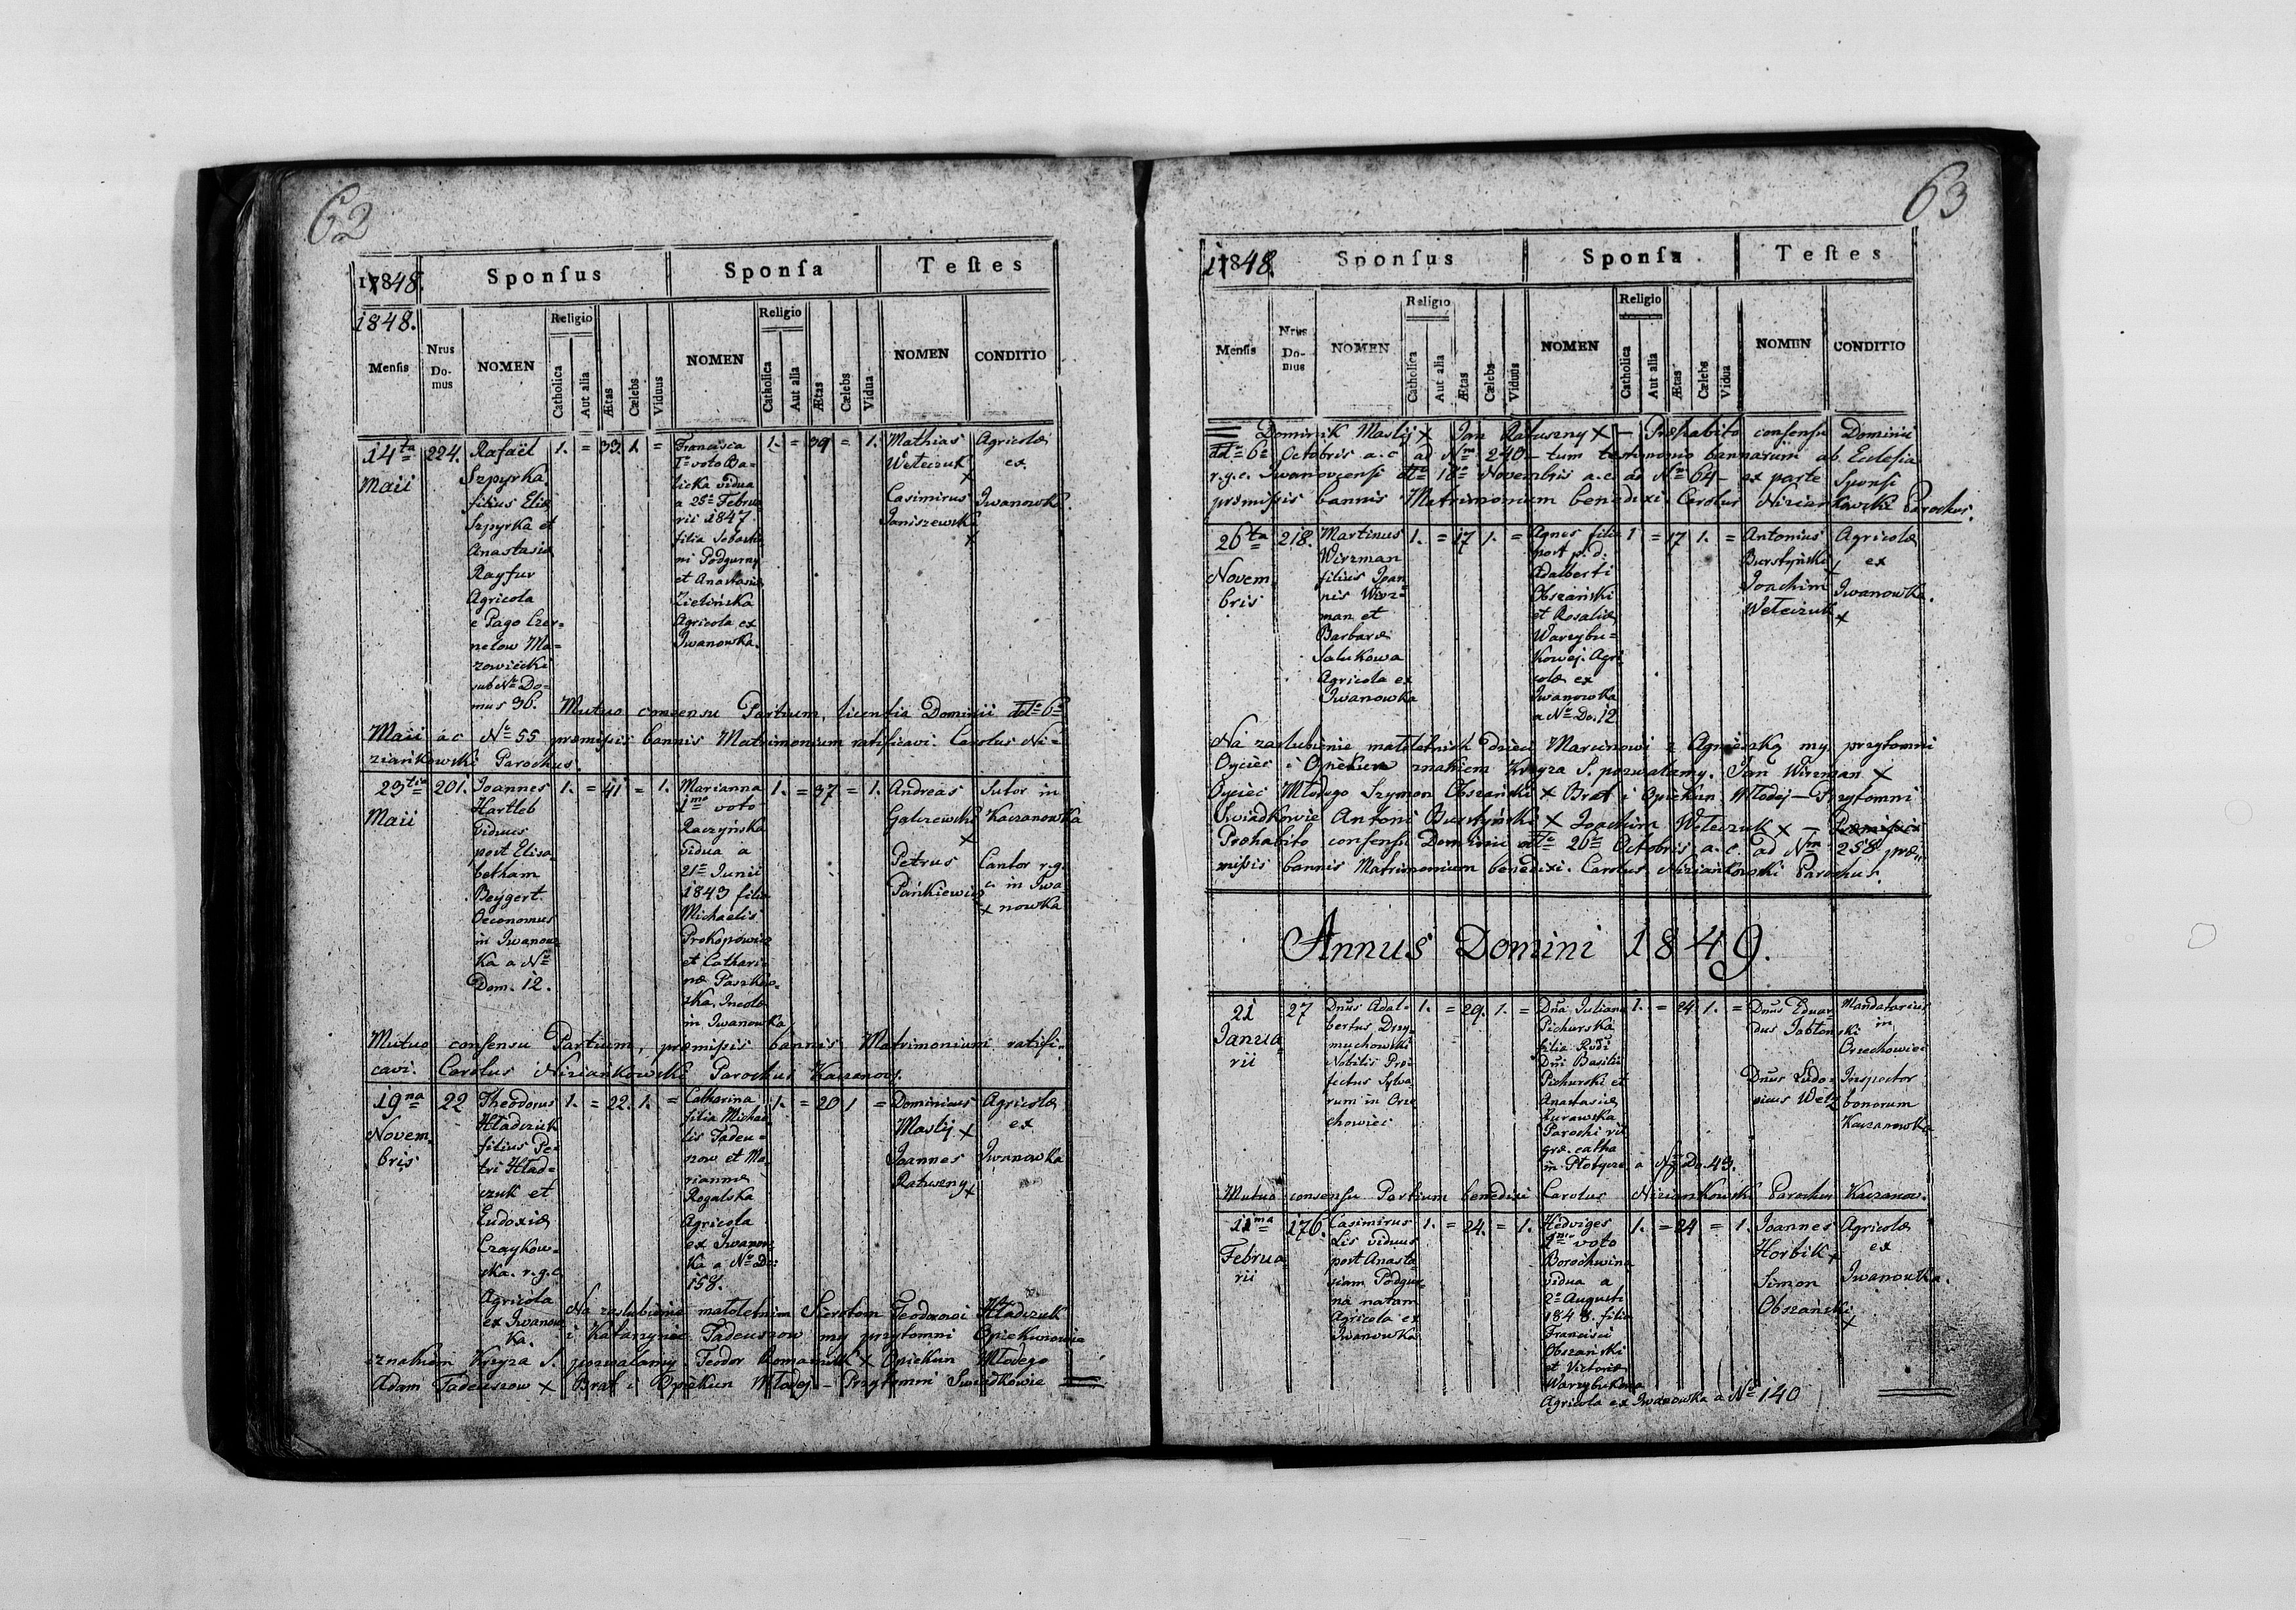 62
17848.
Sponſus
Sponſa
Teſtes
1848.
Menſis
Nrus
Do-
mus
NOMEN
Religio
Catholica
Aut alia
Ætas
Cælebs
Viduus
NOMEN
Religio
Catholica
Aut alia
Ætas
Cælebs
Vidua
NOMEN
CONDITIO
14ta
Maii
224.
Rafaël
Szpyrka
filius Eliæ
Szpyrka et
Anastasiæ
Rayfur
Agricola
e Pago Czer=
nelow Ma=
zowiecki
sub No Do=
mus 36.
1. = 33. 1. =
Francisca
1o voto Ba=
licka vidua
a 25a Februa
rii 1847
filia Sebastia
ni Podgurny
et Anastasiæ
Zielińska
Agricola ex
Iwanowka.
1. = 39 = 1.
Mathias
Weleczuk
x
Casimirus
Janiszewski
x
Agricolæ
ex
Iwanowka.
Mutuo consensu Partium, licentia Dominii dto 6a
Maii a c No 55 præmissis bannis Matrimonium ratificavi. Carolus Ni=
ziańkowski Parochus.
23tia
Maii
201.
Joannes
Hartleb
viduus
post Elisa
betham
Beygert.
Oeconomus
in Iwanow
ka a No
Dom. 12.
1. = 41 = 1.
Marianna
1mo voto
Raczyńska
vidua a
21a Junii
1843 filia
Michaelis
Prokopowicz
et Cathari=
næ Paszkow=
ska. Incola
in Iwanowka
1. = 37 = 1.
Andreas
Galczewski
x
Petrus
Pańkiewicz
x
Sutor in
Kaczanowka
Cantor r.g.
c. in Iwa
nowka
Mutuo consensu Partium, præmissis bannis Matrimonium ratifi=
cavi. Carolus Niziankowski Parochus Kaczanov.
19na
Novem
bris
22
Theodorus
Hładczuk
filius Pe=
tri Hład=
czuk et
Eudoxiæ
Czaykow=
ska. r.g.c.
Agricola
ex Iwanow
ka.
1. = 22. 1. =
Catharina
filia Michae
lis Tadeu=
szow et Ma
riannæ
Rogalska
Agricola
ex Iwanow
ka a No Do:
158.
1. = 20 1 =
Dominicus
Masly x
Joannes
Ratuszny x
Agricolæ
ex
Iwanowka
Na zaslubienie małoletnim Sierotom Teodorowi Hładczuk
i Katarzynie Tadeuszow my przytomni Opiekunowie
znakiem Krzyża S. pozwalamy. Teodor Romaniuk x Opiekun Młodego
Adam Tadeuszow x Brat i Opiekun Młodej – Przytomni Swiadkowie
63
17848.
Sponſus
Sponſa
Teſtes
Menſis
Nrus
Do-
mus
NOMEN
Religio
Catholica
Aut alia
Ætas
Cælebs
Viduus
NOMEN
Religio
Catholica
Aut alia
Ætas
Cælebs
Vidua
NOMEN
CONDITIO
Dominik Masly x Jan Ratuszny x – Præhabito consensu Dominii
dto 6a Octobris a.c ad Nm 240 – tum testimonio bannarum ab Ecclesia
r.g.c. Iwanovcensi dto 18a Novembris a.c. ad No 64 – ex parte Sponsi
præmissis bannis Matrimonium benedixi Carolus Niziankowski Parochus.
26ta
Novem
bris
218.
Martinus
Wirzman
filius Joan
nis Wirz=
man et
Barbaræ
Salukowa
Agricola ex
Iwanowka
1. = 17 1. =
Agnes filia
post p. d.
Adalberti
Obszański
et Rosaliæ
Warzybu=
kowej. Agri
colæ ex
Iwanowka
a No Do. 12
1 = 17 1. =
Antonius
Bursztyński
x
Joachim
Weleczuk
x
Agricolæ
ex
Iwanowka.
Na zaslubienie małoletnich dzieci Marcinowi z Agnieszką my przytomni
Oyciec i Opiekun znakiem Krzyza S. pozwalamy. Jan Wirzman x
Oyciec Młodego Szymon Obszański x Brat i Opiekun Młodej – Przytomni
Swiadkowie Antoni Bursztyński x Joachim Weleczuk x –
Præhabito consensu Dominii dto 26a Octobris a. c. ad Nm 258 præ=
missis bannis Matrimonium benedixi. Carolus Niziańkowski Parochus.
Annus Domini 1849.
21
Janua
rii
27
Dnus Adal=
bertus Dzy=
muchowski
Nobilis Præ
fectus Sylva
rum in Orze
chowiec
1. = 29. 1. =
Dna Juliana
Pichurska
filia Rndi
Dni Basilii
Pichurski et
Anastasiæ
Zurawska
Parochi rit
græ. catho
in Płotycze a No Do. 43.
1. = 24. 1. =
Dnus Eduar
dus Jabłon
ski
Dnus Ludo=
vicus Welz
Mandatarius
in
Orzechowiec
Inspector
bonorum
Kaczanowka
Mutuo consensu Partium benedixi Carolus Niziankowski Parochus Kaczanov.
11ma
Februa
rii
176.
Casimirus
Lis viduus
post Anasta
siam Podgur
na natam
Agricola ex
Iwanowka
1. = 24. = 1.
Hedviges
1mo voto
Borochwina
vidua a
2a Augusti
1848. filia
Francisci
Obszański
et Victoriæ
Warzybukowa
Agricola ex Iwanowka a No 140
1. = 24 = 1.
Joannes
Horbik x
Simon
Obszański
x
Agricolæ
ex
Iwanowka.